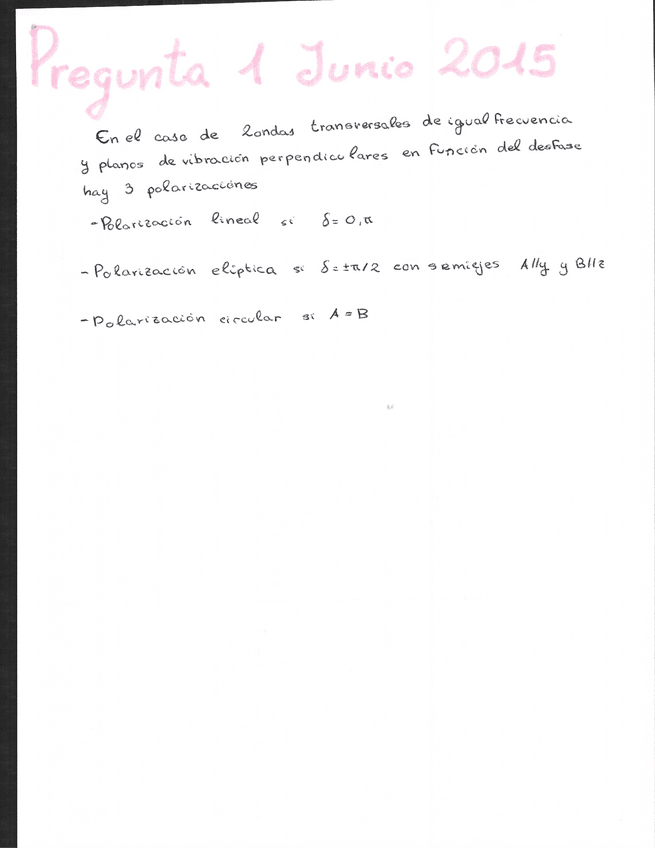 Pregunta 1 Junio 2015
En el caso de 2 ondas transversales de igual frecuencia
y planos de vibración perpendiculares en función del desfase
hay 3 polarizaciónes
-Polarización lineal si δ=0,π
-Polarización elíptica si δ=±π/2 con semiejes A//y y B//z
-Polarización circular si A=B